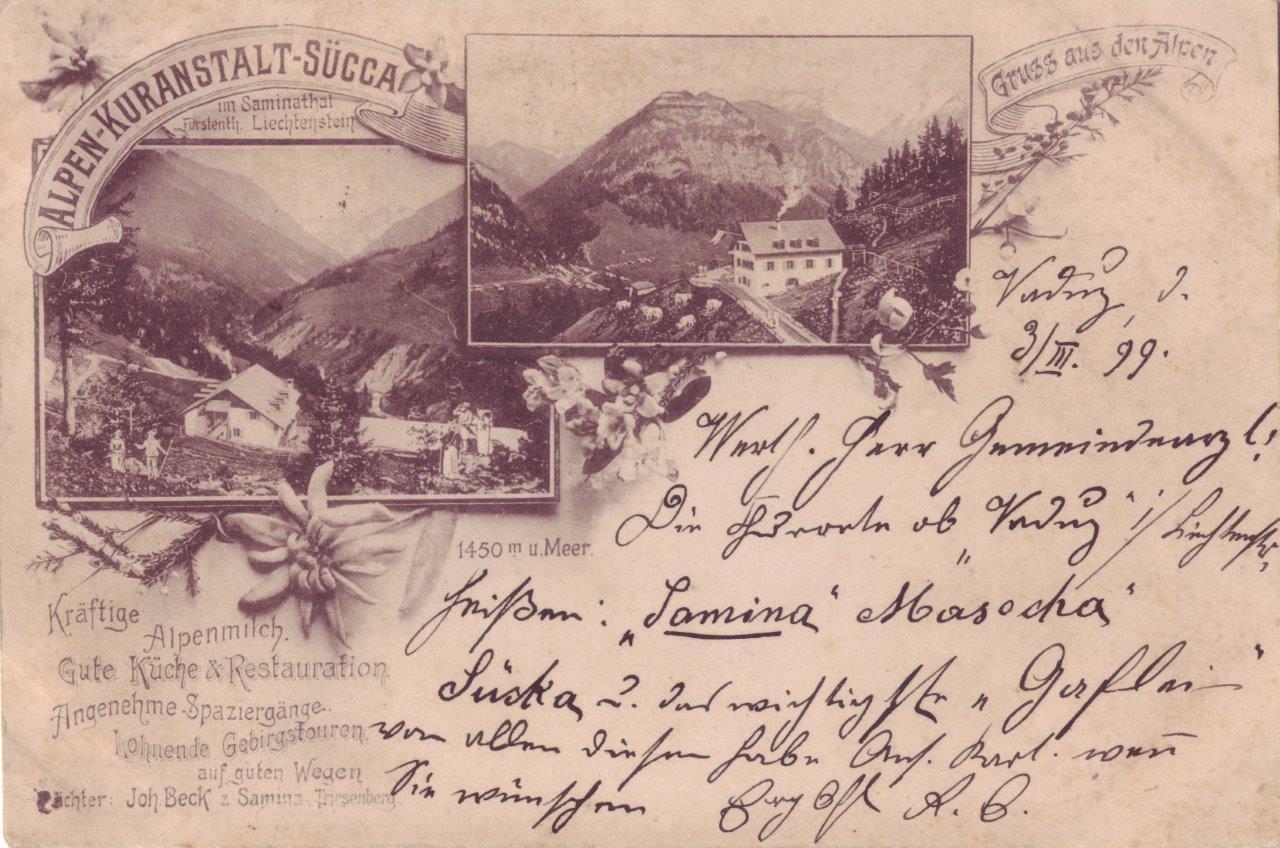 ALPEN-KURANSTALT-SÜCCA
im Saminathal
Fürstenth. Liechtenstein
Gruss aus den Alpen
Vaduz, d.
3/III. 99.
Werth. Herr Gemeindearzt!
Die Kurorte ob „Vaduz“ i/ Liechtenst.
heißen: „Samina“ Masocha
Sücka u. das wichtigste „Gaflei“
von allen diesen habe Ans. Kart. wenn
Sie wünschen
1450 m u. Meer.
Kräftige
Alpenmilch.
Gute Küche & Restauration.
Angenehme Spaziergänge.
Lohnende Gebirgstouren
auf guten Wegen
Pächter: Joh. Beck z Samina. Triesenberg.